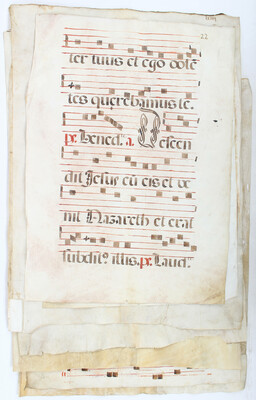 22
ter tuus et ego dole̅
tes querebamus te.
ps. bened. a. Descen
dit Jesus cu̅ eis et ve
nit Nazareth et erat
subdit⁹ illis. ps. Laud.